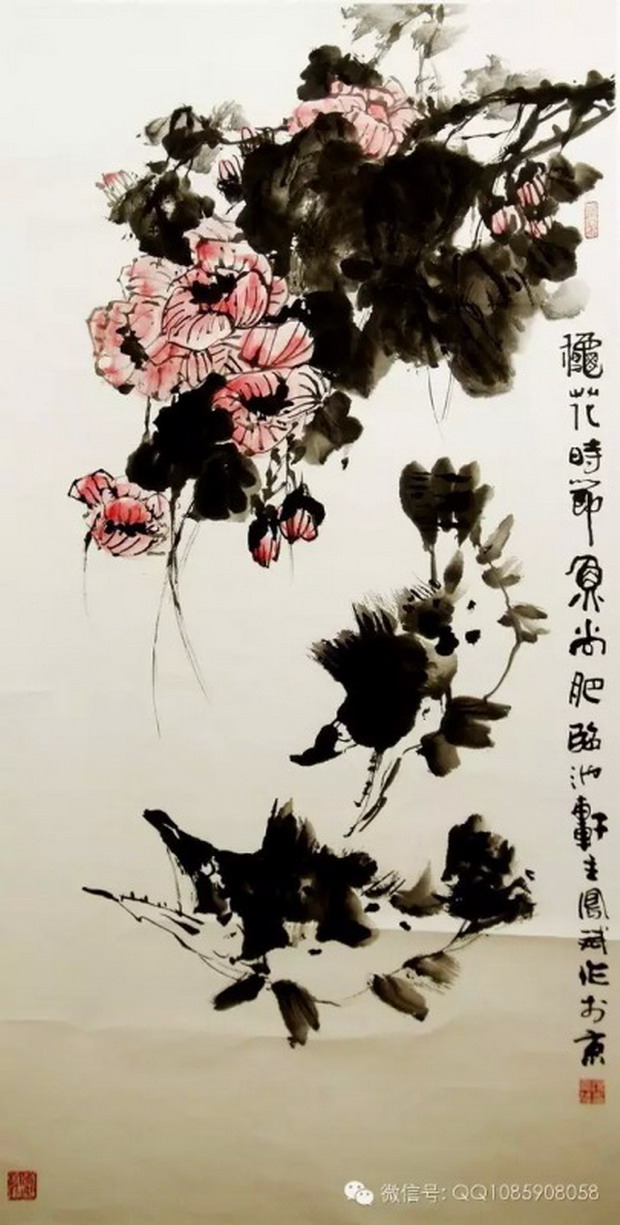 穐花時節魚尚肥臨池軒主鳳斌作於京
微信号: QQ1085908058